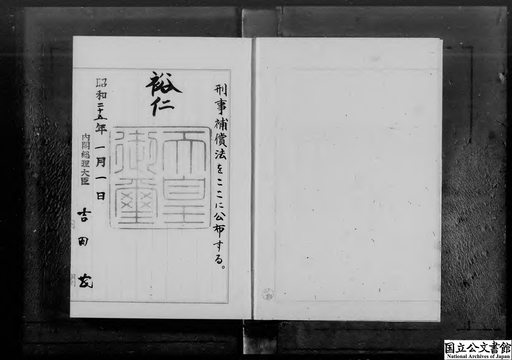 刑事補償法をここに公布する。
裕仁
天皇御璽
昭和二十五年一月一日
内閣総理大臣
吉田茂
国立公文書館
National Archives of Japan